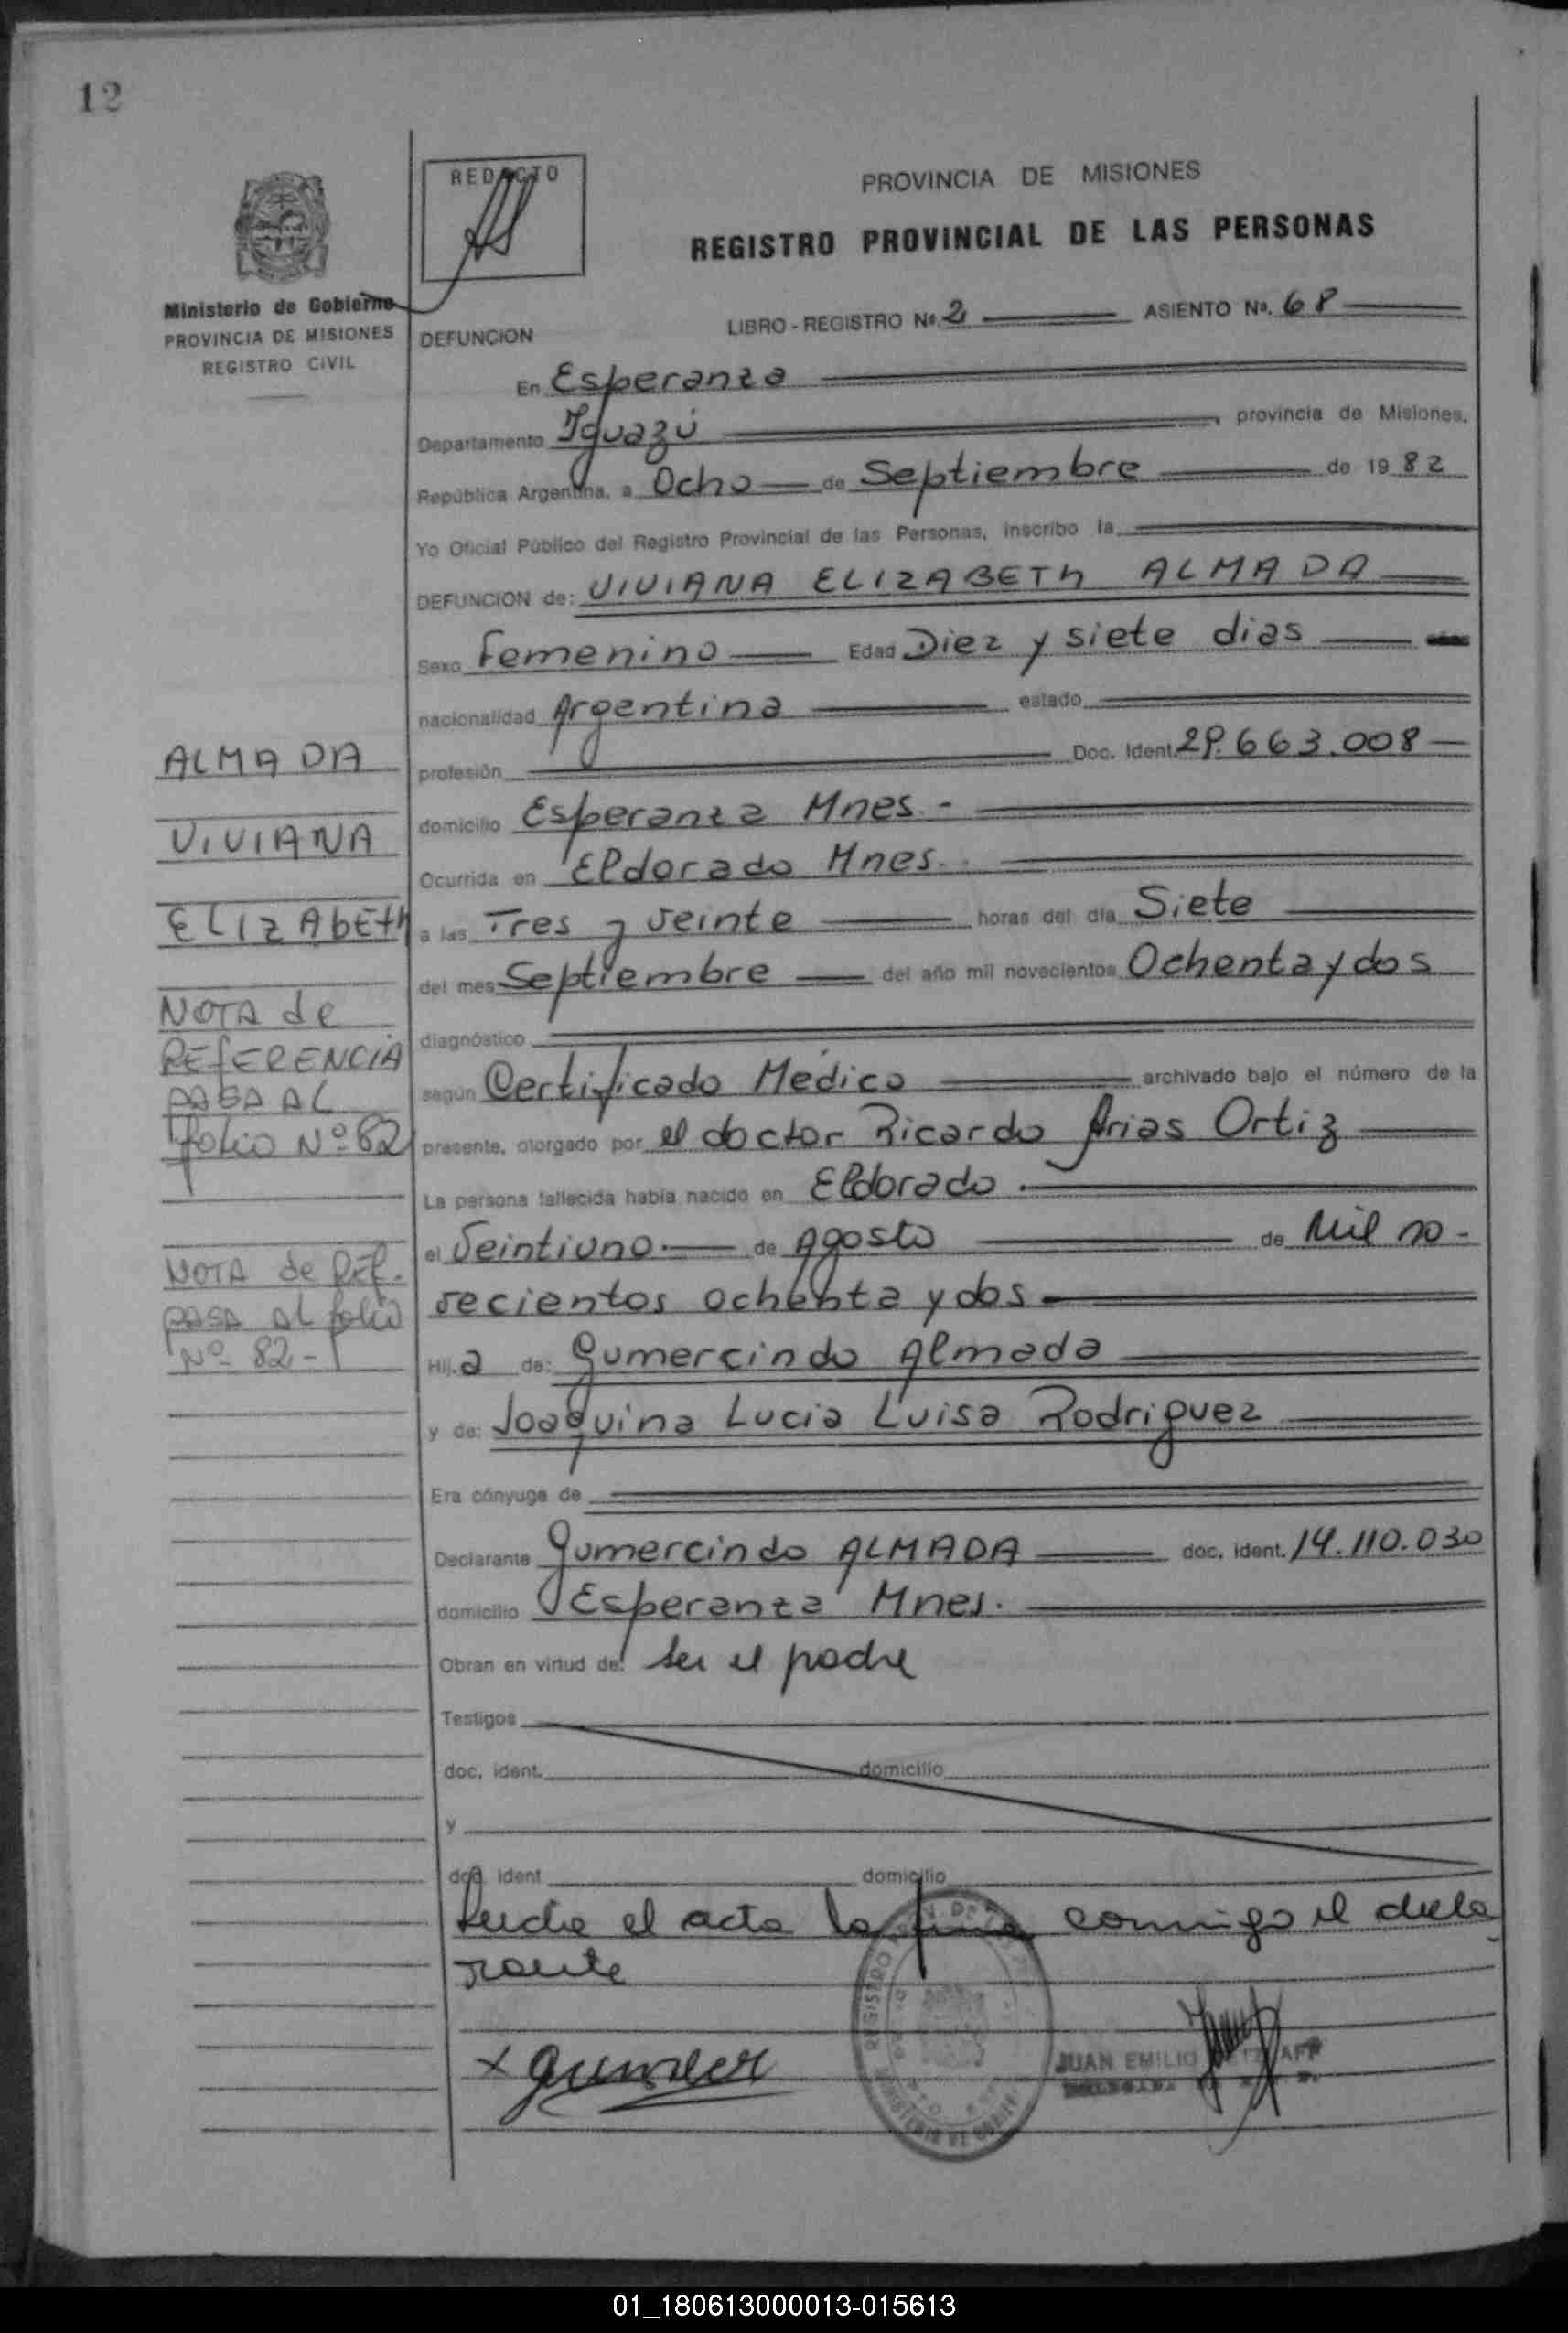 12
REDACTO
PROVINCIA DE MISIONES
REGISTRO PROVINCIAL DE LAS PERSONAS
Ministerio de Gobierno
PROVINCIA DE MISIONES
REGISTRO CIVIL
DEFUNCION
LIBRO - REGISTRO Nº. 2 ASIENTO Nº. 68
En Esperanza
Departamento Iguazú, provincia de Misiones,
República Argentina, a Ocho de Septiembre de 1982
Yo Oficial Público del Registro Provincial de las Personas, inscribo la
DEFUNCION de: VIVIANA ELIZABETh ALMADA
Sexo Femenino Edad Diez y siete dias
nacionalidad Argentina estado
profesión Doc. Ident. 29.663.008
domicilio Esperanza Mnes.-
Ocurrida en Eldorado Mnes.
a las Tres y veinte horas del día Siete
del mes Septiembre del año mil novecientos Ochenta y dos
diagnóstico
según Certificado Médico archivado bajo el número de la
presente, otorgado por el doctor Ricardo Arias Ortiz
La persona fallecida había nacido en Eldorado
el Veintiuno de Agosto de Mil no-
vecientos ochenta y dos
Hij.a de: Gumercindo Almada
y de: Joaquina Lucia Luisa Rodriguez
Era cónyuge de
Declarante Gumercindo ALMADA doc. ident. 14.110.030
domicilio Esperanza Mnes.
Obran en virtud de: ser el padre
Testigos
doc. ident. domicilio
y
doc. ident domicilio
Leida el acta la firma conmigo el decla
rante
x Gumer
JUAN EMILIO
ALMADA
VIVIANA
ELIZAbETh
NOTA de
REfERENCIA
PASA AL
folio Nº 62
NOTA de REf.
PASA AL folio
Nº 82-
01_180613000013-015613